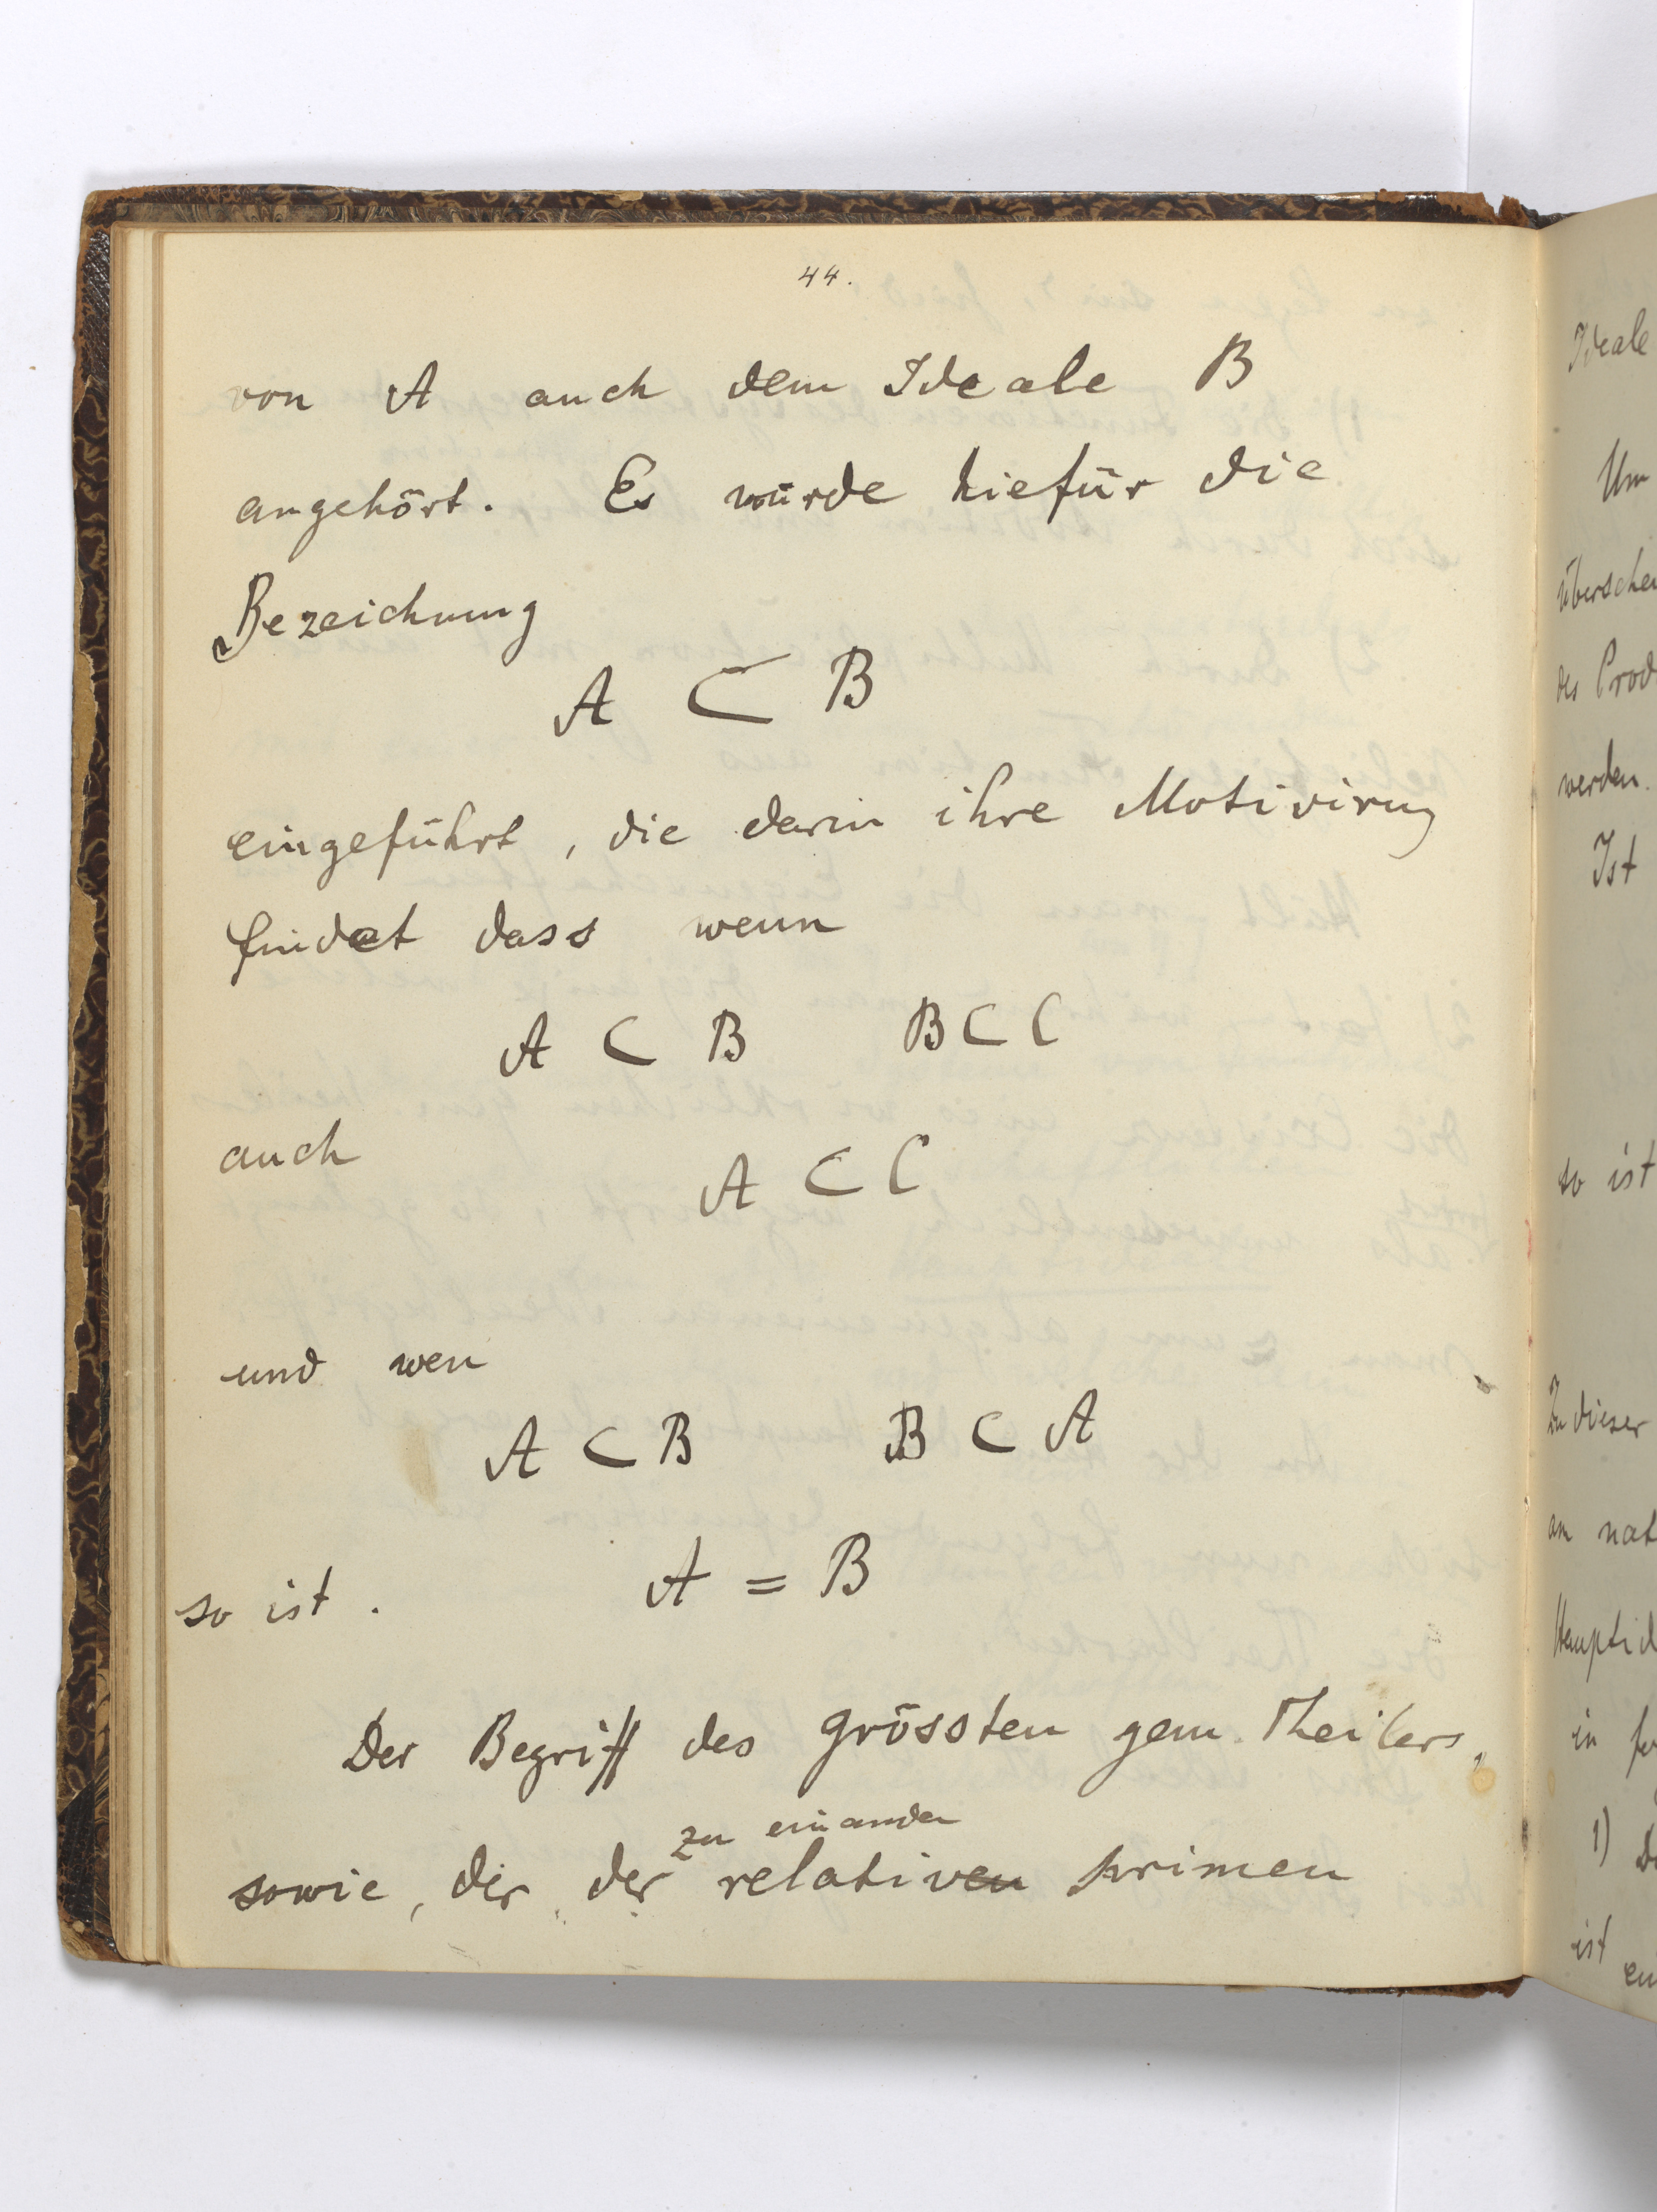 44.
von A auch dem Ideale B
angehört. Es würde hiefür die
Bezeichnung
A ⊂ B
eingeführt, die darin ihre Motivirung
findet dass wenn
A ⊂ B B ⊂ C
auch
A ⊂ C
und wen
A ⊂ B B ⊂ A
so ist. A = B
Der Begriff des grössten gem. Theilers,
zu einander
sowie, der der relativen primen
Ideale
Um
des Prod
werden.
Ist
so ist
Zu dieser
am nat
Hauptid
in
1)
ist